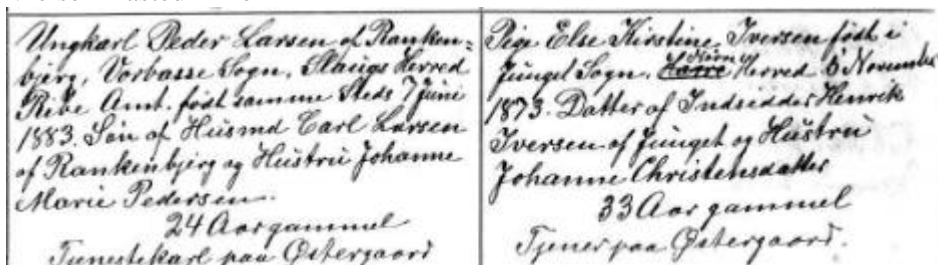 Ungkarl Peder Larsen af Ranken-
bjerg, Vorbasse Sogn, Slaugs Herred
Ribe Amt. født samme Steds 7 Juni
1883. Søn af Husmd Carl Larsen
af Rankenbjerg og Hustru Johanne
Marie Pedersen.
24 Aar gammel
Tjenestekarl paa Østergaard
Pige Else Kirstine Iversen født i
Junget Sogn, Nørre Herred 6 November
1873. Datter af Indsidder Henrik
Iversen af Junget og Hustru
Johanne Christensdatter
33 Aar gammel
Tjener paa Østergaard.